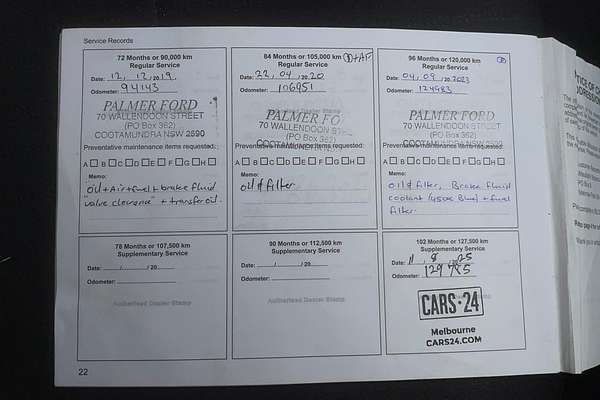 Service Records
72 Months or 90,000 km
Regular Service
Date: 12, 12, 2019
Odometer: 94143
PALMER FORD
70 WALLENDOON STREET
(PO Box 362)
COOTAMUNDRA NSW 2590
Preventative maintenance items requested:
A B C D E F G H
Memo:
oil + Air + fuel + brake fluid
valve clearance + transfer oil.
84 Months or 105,000 km
Regular Service
Date: 22, 04, 2020
Odometer: 106951
Authorised Dealer Stamp
PALMER FO
70 WALLENDOON ST
(PO Box 362)
COOTAMUNDRA
Preventative maintenance items requested:
A B C D E F G H
Memo:
oil & filter.
96 Months or 120,000 km
Regular Service
Date: 04, 09, 2023
Odometer: 124983
PALMER FORD
70 WALLENDOON STREET
(PO Box 362)
COOTAMUNDRA NSW 2590
Preventative maintenance items requested:
A B C D E F G H
Memo:
oil & filter, Brake fluid
coolant
+ fuel
filter.
78 Months or 107,500 km
Supplementary Service
Date: / / 20
Odometer:
Authorised Dealer Stamp
90 Months or 112,500 km
Supplementary Service
Date: / / 20
Odometer:
Authorised Dealer Stamp
102 Months or 127,500 km
Supplementary Service
Date: 11, 8, 2025
Odometer:
CARS·24
Melbourne
CARS24.COM
22